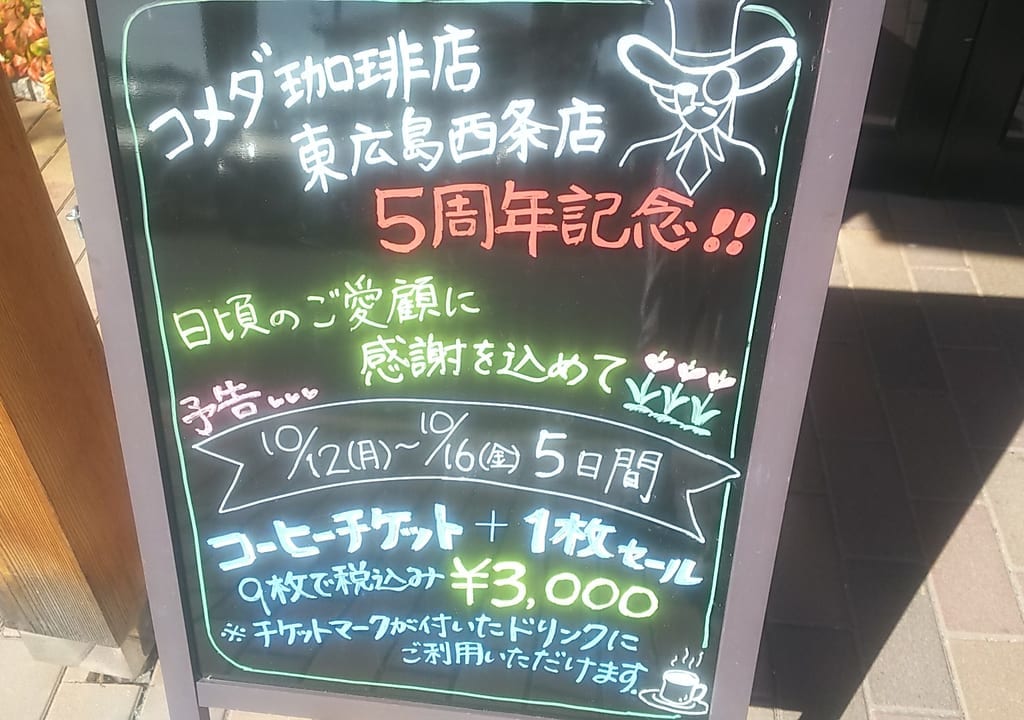 コメダ珈琲店
東広島西条店
5周年記念!!
日頃のご愛顧に
感謝を込めて
予告...
10/12(月)~10/16(金) 5日間
コーヒーチケット+1枚セール
9枚で税込み¥3,000
※チケットマークが付いたドリンクに
ご利用いただけます.